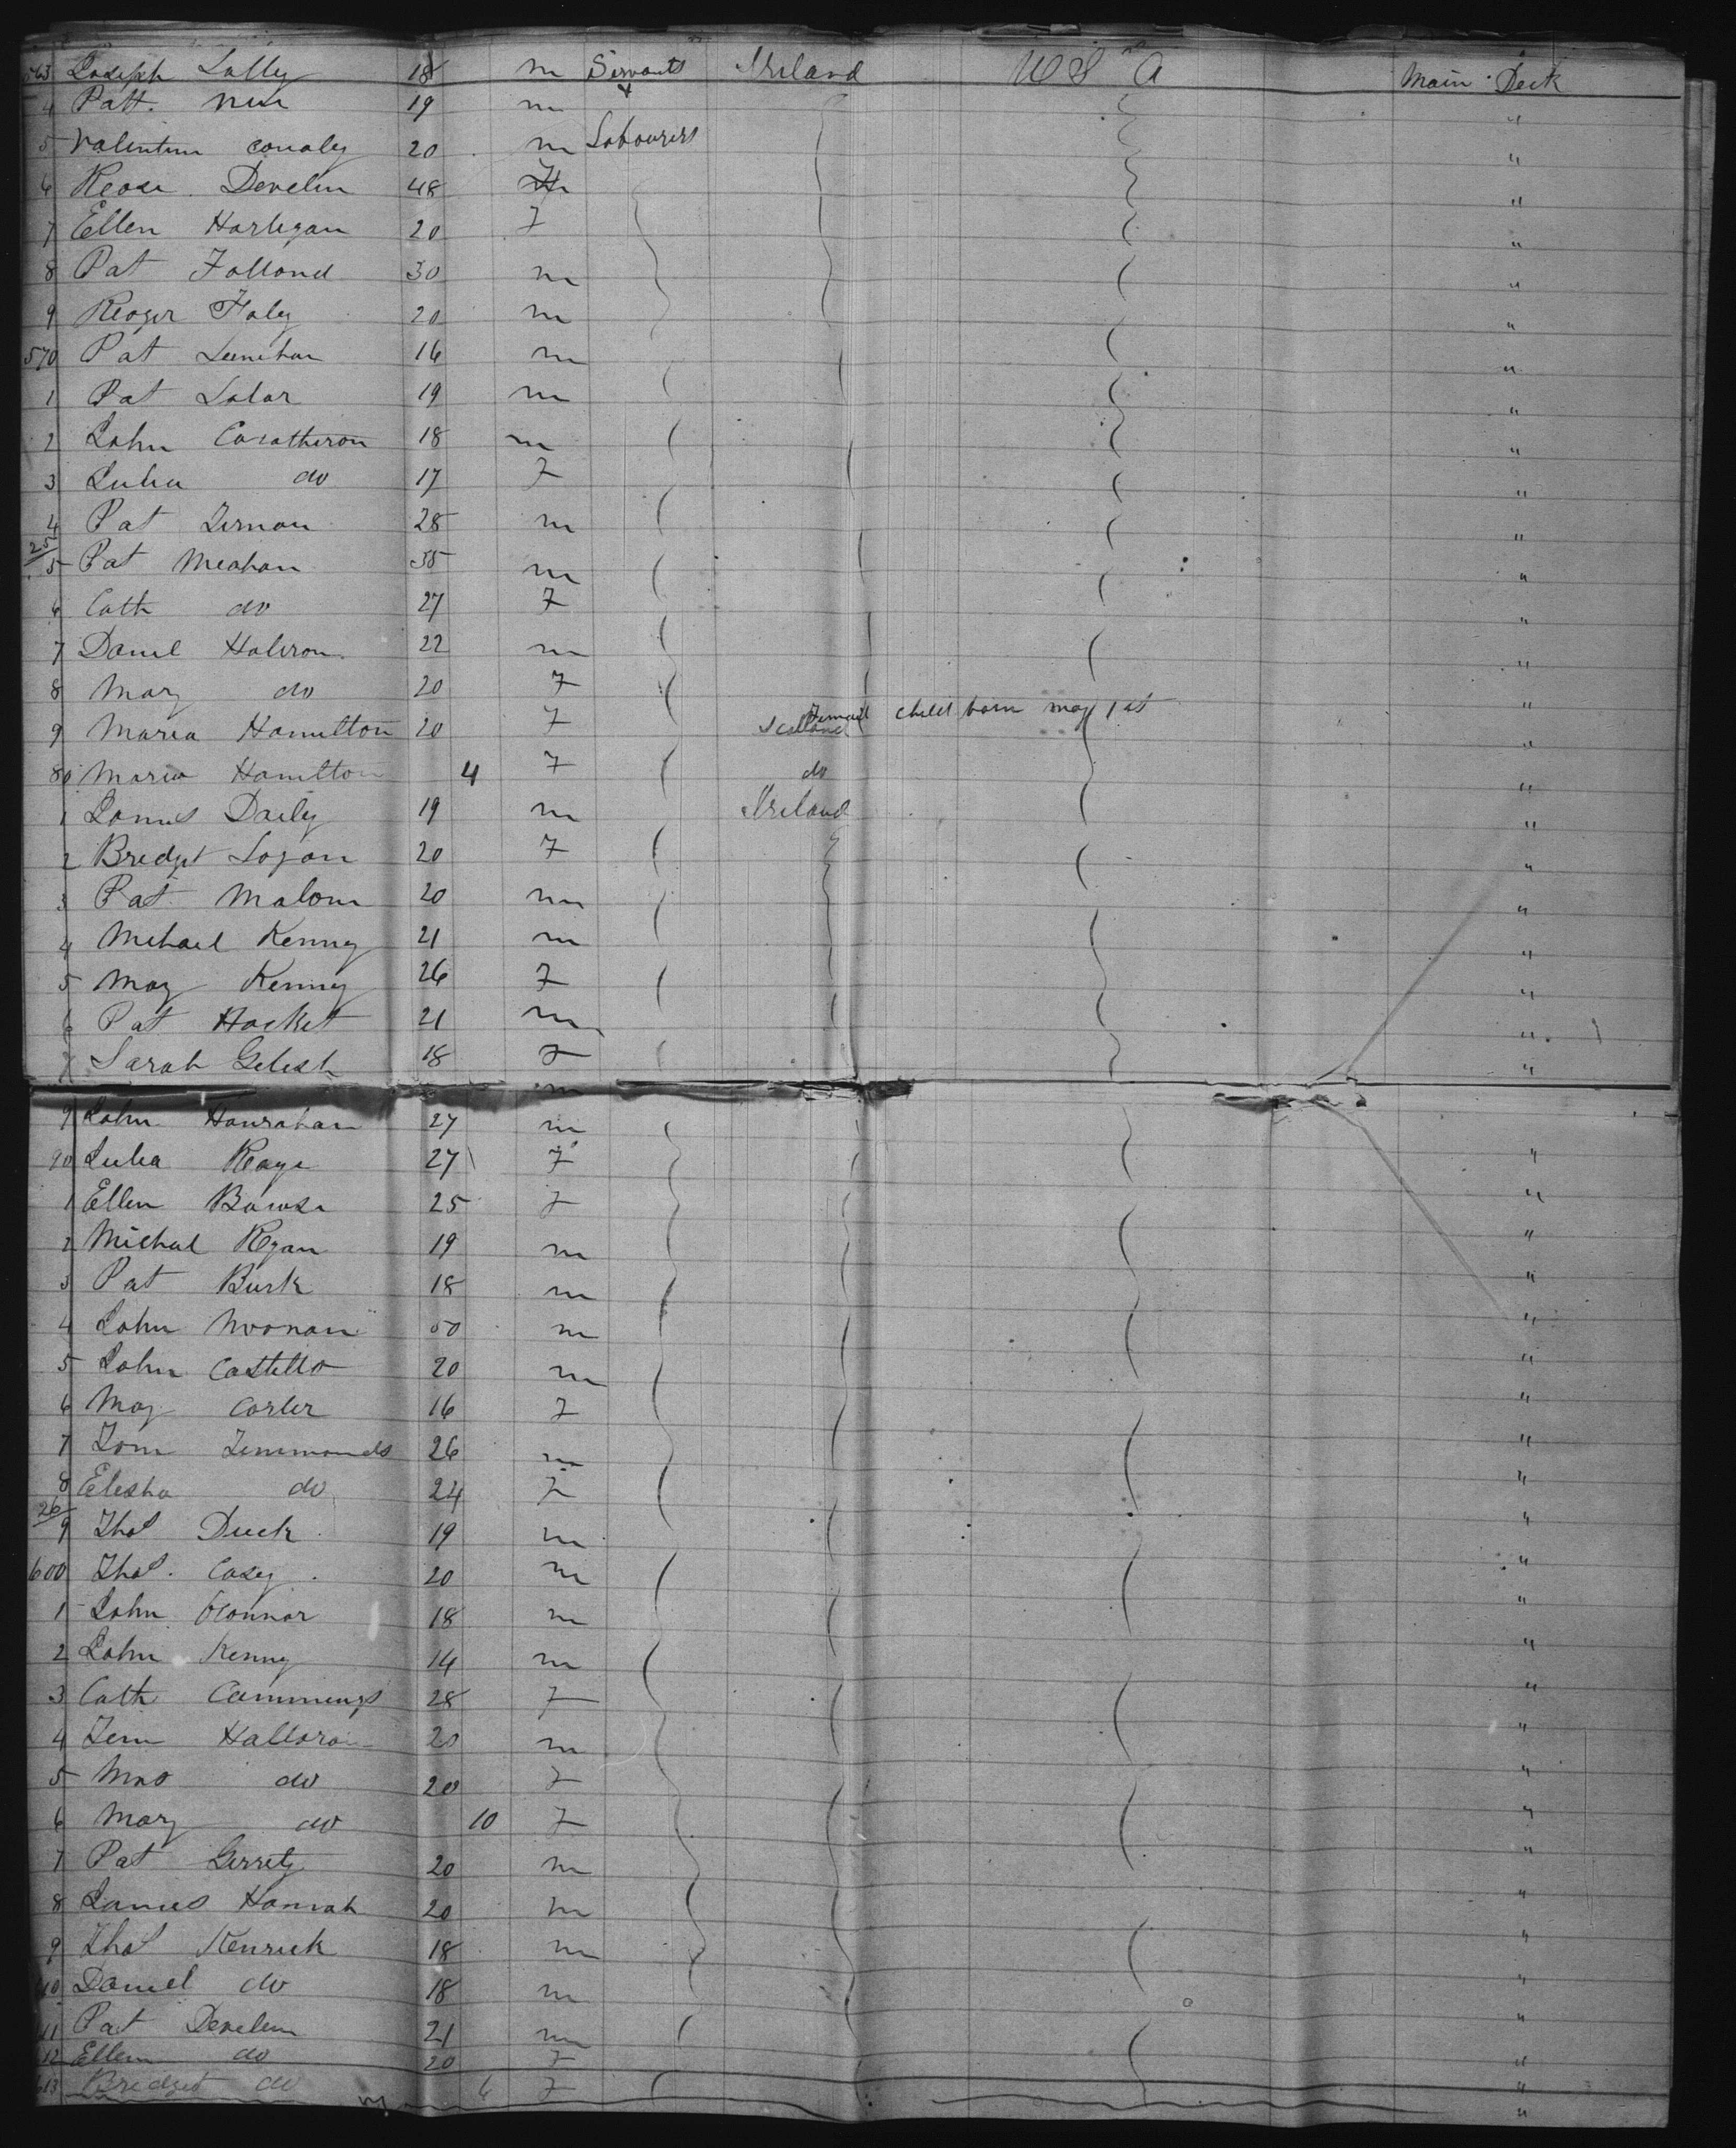 563 Joseph Lally 18 m Servants Ireland U S A Main Deck
4 Patt. 19 m & "
5 Valentine Conaley 20 m Labourers "
6 Rose Develin 48 "
7 Ellen Hartigan 20 F "
8 Pat Folland 30 m "
9 Reoger Faley 20 m "
570 Pat Leenehan 16 m "
1 Pat Lalor 19 m "
2 John Caratheron 18 m "
3 Julia do 17 F "
4 Pat Tirnan 28 m "
25
5 Pat Meahan 35 m "
6 Cath do 27 F "
7 Daniel Haleron 22 m "
8 Mary do 20 F "
9 Maria Hamilton 20 F Scotland Female child born May 1st "
80 Maria Hamilton 4 F do "
1 James Daily 19 m Ireland "
2 Bridget Logan 20 F "
3 Pat Malone 20 m "
4 Michael Kenny 21 m "
5 May Kenny 26 F "
6 Pat Hacket 21 m "
7 Sarah 18 F "
m
9 John Hanrahan 27 m
90 Julia Keaye 27 F "
1 Ellen 25 F "
2 Michael Ryan 19 m "
3 Pat Burk 18 m "
4 John Noonan 50 m "
5 John Castello 20 m "
6 May Carter 16 F "
7 Tom Timmonds 26 m "
8 Elesha do 24 F "
26
9 Thos Duck 19 m "
600 Thos. Casey 20 m "
1 John O'Connor 18 m "
2 John Kenny 14 m "
3 Cath Cammings 28 F "
4 Tim Halloran 20 m "
5 Mrs do 20 F "
6 Mary do 10 F "
7 Pat Gerrety 20 m "
8 James Hannah 20 m "
9 Thos Kenrick 18 m "
10 Daniel do 18 m "
11 Pat Develin 21 m "
12 Ellen do 20 F "
613 Bridget do 6 F "